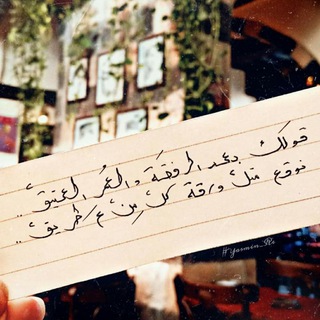 قولك بعد الرفقة والعُمر العتيق ..
نوقع متل ورقة كل مين ع طريق ..
#yasmin_Rs